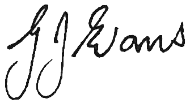 G J Evans